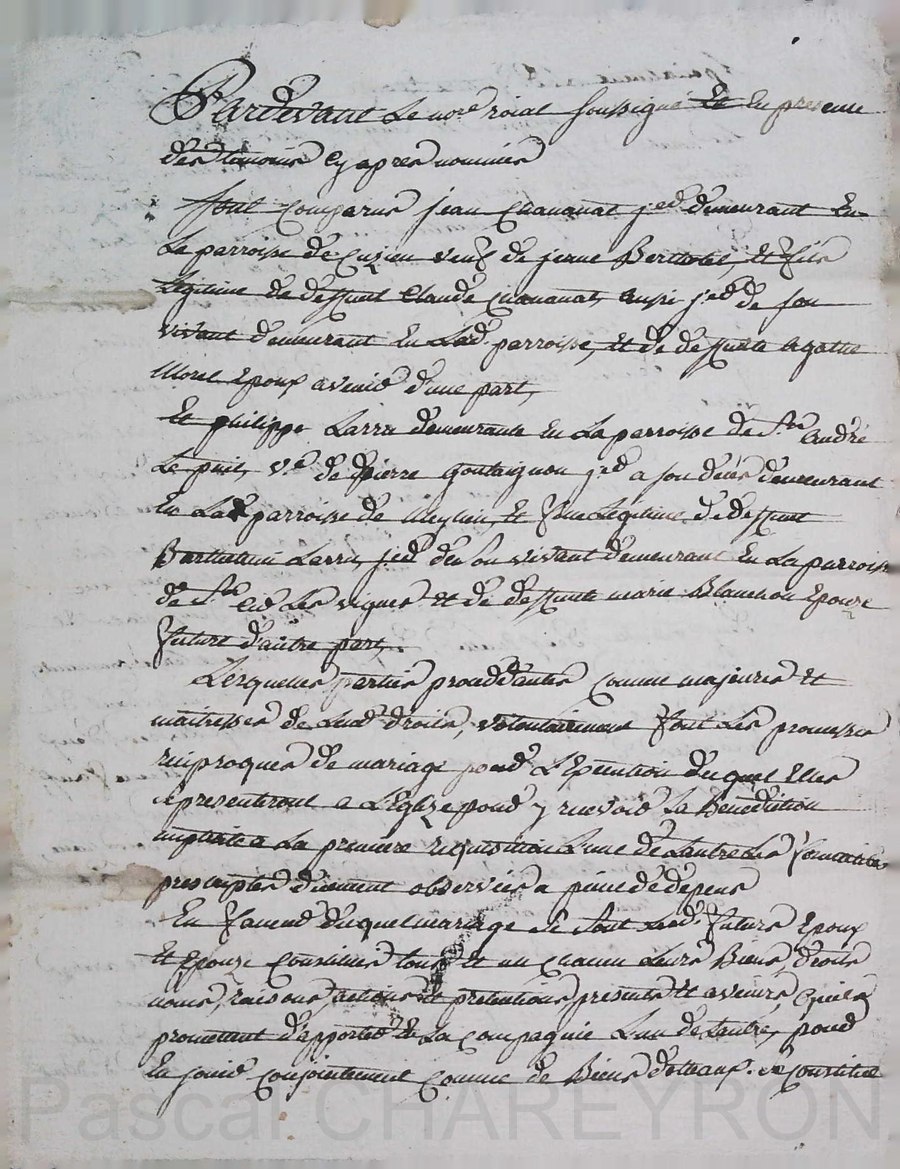 Pardevant Le nore roial soussigné Et En presence
des temoins cy apres nommés
sont comparus jean chavanat jed demeurant En
La parroisse de Cuzieu veuf de jeane Bertholet, et fils
Legitime de deffunt Claude chavanat, aussi jed de son
vivant demeurant En Lad. parroisse, et de deffunte agathe
Morel Epoux avenir d'une part,
Et philippe Larra demeurante En La parroisse de St andré
Le puit, ve de pierre goutaignon jed a son décés demeurant
En Lad parroisse de Meylieu, Et fille Legitime de deffunt
Barthelemi Larra, jed de son vivant demeurant En La parroisse
de St Cir Les vignes et de deffunte marie Blanchon Epouze
future d'autre part,
Lesquelles parties procedantes comme majeures et
maitresses de Leurs droits, volontairement font Les promesses
reciproques de mariage pour L'Execution duquel Elles
se presenteront a L'Eglize pour y recevoir La Benediction
nuptiale a La premiere requisition L'une de L'autre Les formalités
prescriptes düement observées a peine de depens
En faveur duquel mariage Se Sont Lesd. futurs Epoux
Et Epouze constitués tous et un chacun Leurs Biens, droits
noms, raisons, actions et pretentions, presents et avenirs, quils
promettent d'apporter En La compagnie L'un de L'autre, pour
En jouir conjointement comme de Biens dotaux. Se constitue
Pascal CHAREYRON